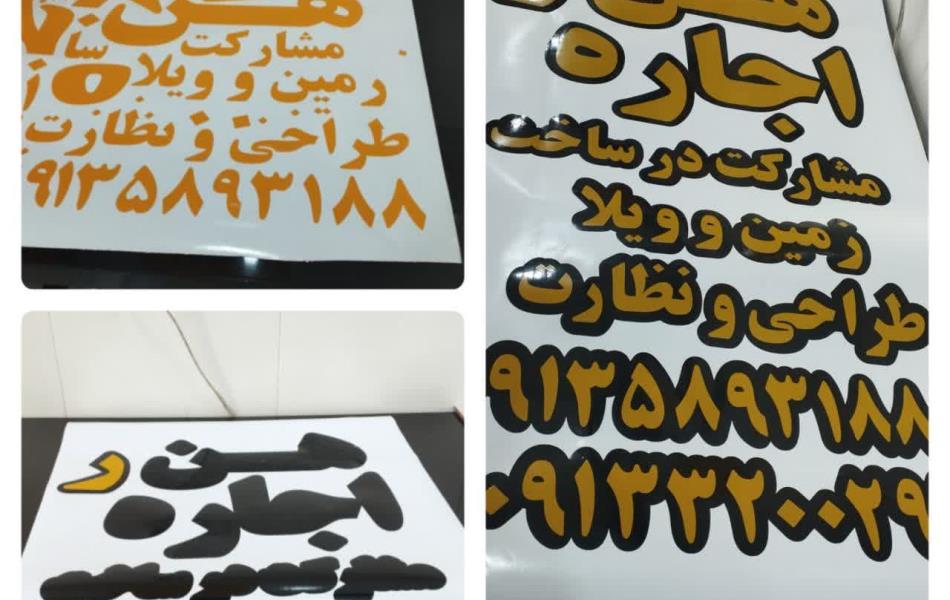 مشارکت سا
رمین و ویلا
طراحی و نظارت
۹۱۳۵۸۹۳۱۸۸
رهن
اجاره
رهن
اجاره
مشارکت در ساخت
زمین و ویلا
طراحی و نظارت
۹۱۳۵۸۹۳۱۸۸
۰۹۱۳۳۲۰۰۲۹